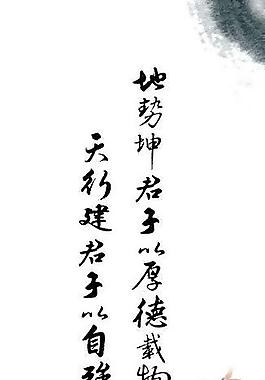 地势坤君子以厚德载物
天行建君子以自强